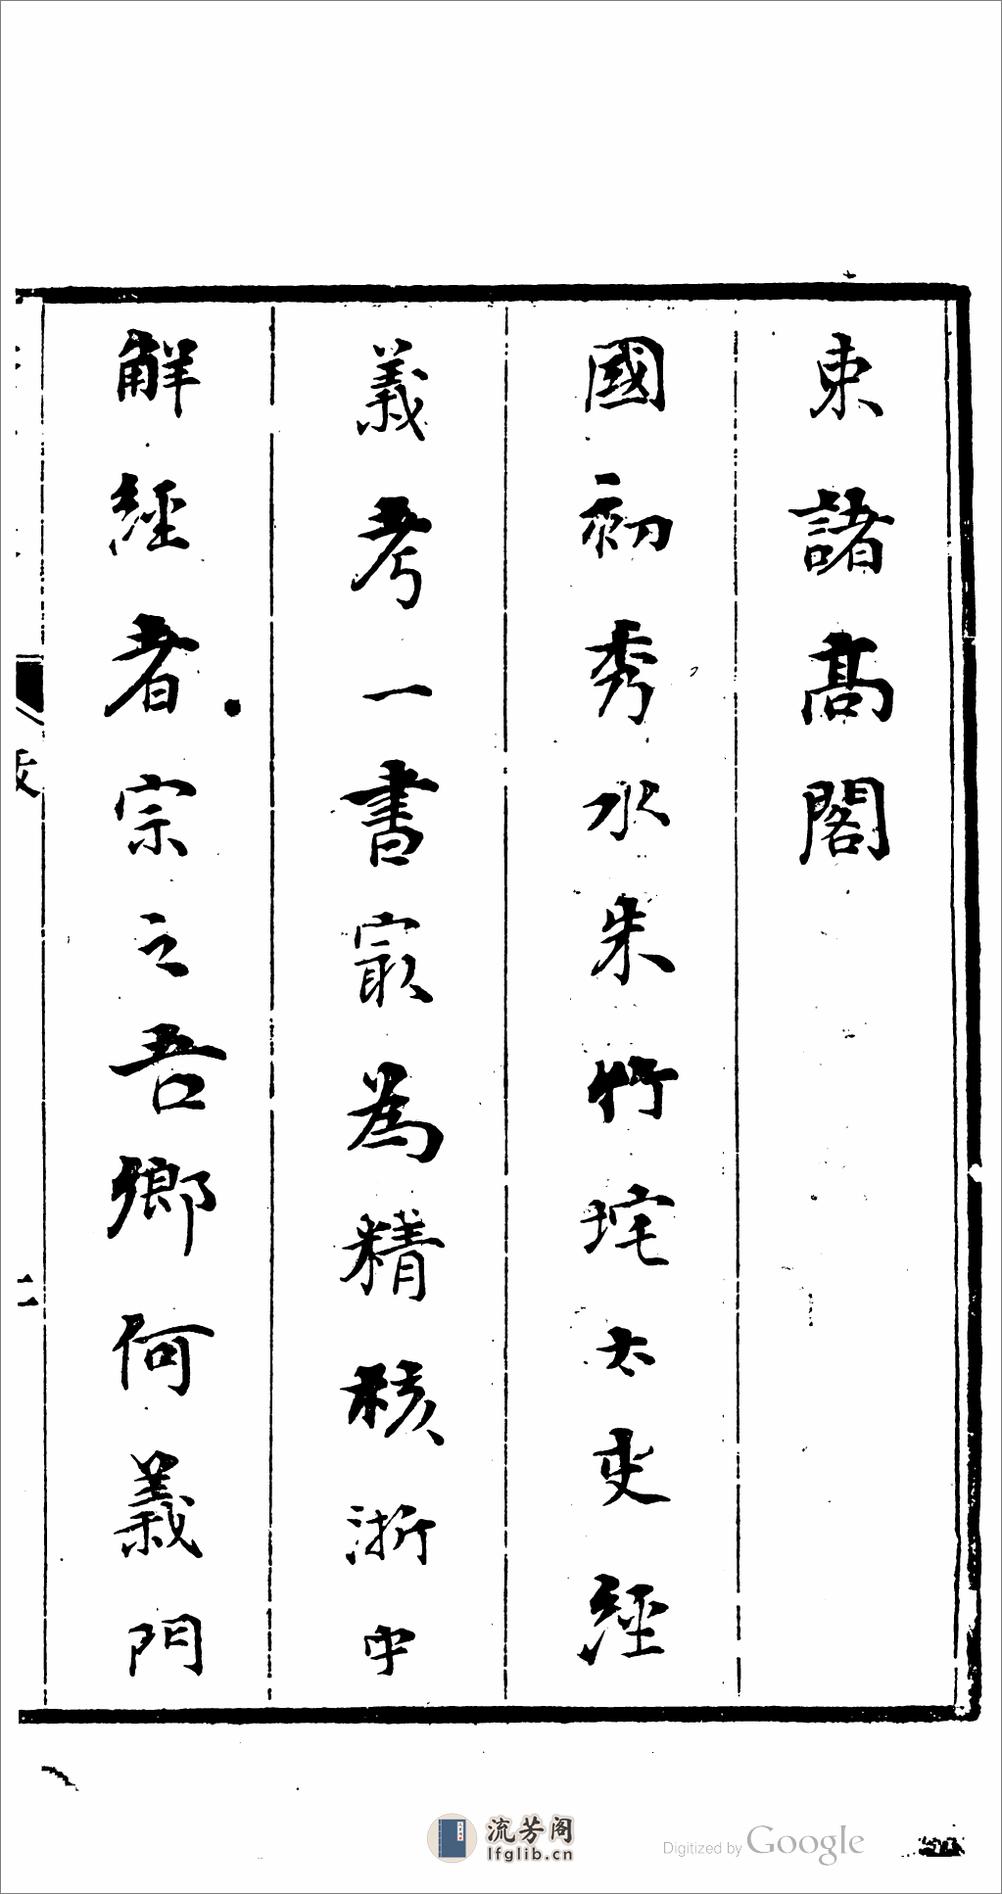 東諸髙閣
國初秀水朱竹垞太史經
義考一書㝡為精核浙中
解經者宗之吾鄉何義門
二
流芳阁
lfglib.cn
Digitized by Google